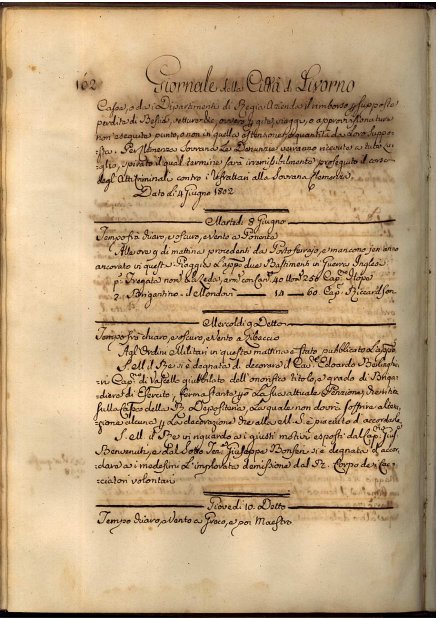 162 Giornale della Città di Livorno
Cassa, o da Dipartimenti di Regia Azienda il rimborso p supposte
perdite di Bestie, vetture &c. ovvero p gite, piogge, o apprensioni
non eseguite punto, o non in quella estensione, e quantità da loro suppo-
sta. Per Clemenza Sovrana le Denunzie verranno ricevute a tutto
spirato il qual termine sarà irremissibilmente proseguito il corso
degli Atti Criminali contro i Refrattari alla Sovrana Clemenza.
Dato di 4 Giugno 1802
Martedì 8 Giugno
Tempo frà chiaro, e oscuro, e Vento a Ponente
Alle ore 9 di mattina procedenti da Porto ferrajo, e mancono jeri anno
ancorato in questa Piaggia due Bastimenti in Guerra Inglesi
p. Fregata con 40 Uom 250 Cap. Hope
2. Brigantino: il Clondon 18 60 Cap. Riccardson
Mercoledì 9 Detto
Tempo frà chiaro, e oscuro, e Vento a Libeccio
Agl'Ordini Militari in questa mattina è stato pubblicato
S. M. il Re si è degnato di decorare il Cav. Edoardo
in Cap. di Vascello giubbilato dell'onorifico titolo, e grado di Briga-
diere di Esercito, ferma stante p Lui la sua attuale Pensione, Vestita
sulla Cassa della R. Depositeria, la quale non dovrà soffrire altera-
zione alcuna p La decorazione che alla M. S. è piaciuto d'accordarle.
S. M. il Re in riguardo ai giusti motivi esposti dal Cap.
Benvenuti, e dal Sotto Ten. Giuseppe Bonfini si è degnato d'accor-
dare ai medesimi l'implorata demissione dal R. Corpo de Cac-
ciatori volontari
Giovedì 10 Detto
Tempo chiaro, e Vento a Greco, e poi Maestro